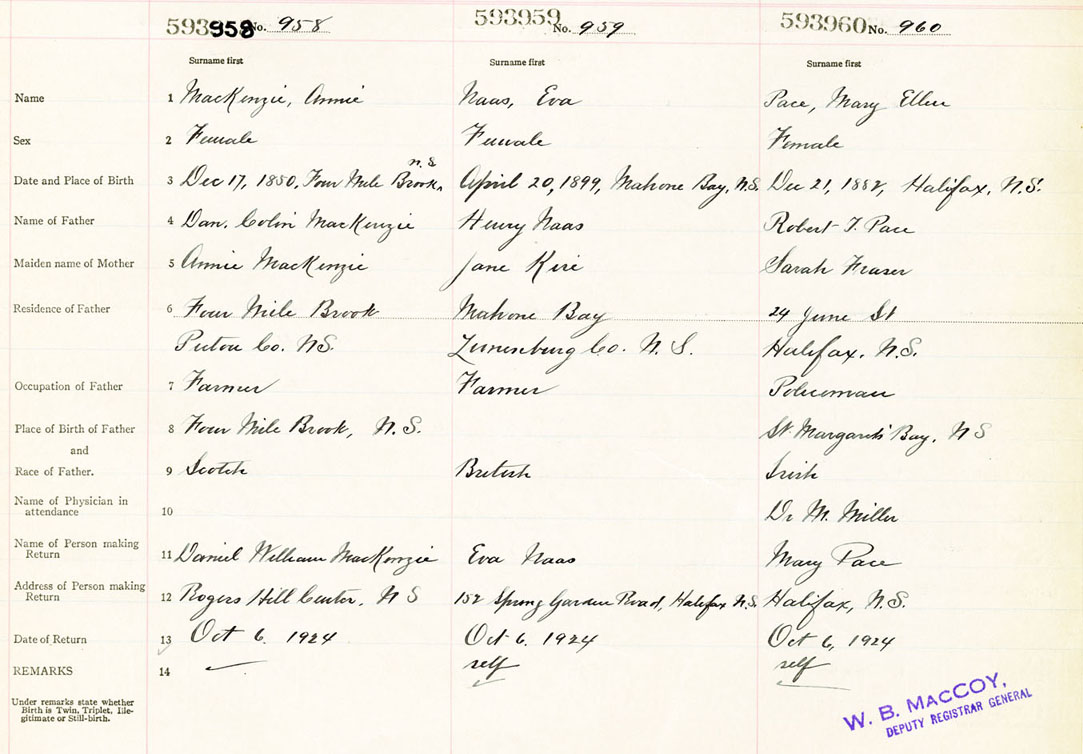 593958 No. 958 593959 No. 959 593960 No. 960
Surname first Surname first Surname first
Name 1 MacKenzie, Annie Naas, Eva Pace, Mary Ellen
Sex 2 Female Female Female
N.S
Date and Place of Birth 3 Dec 17, 1880, Four Mile Brook, April 20, 1899, Mahone Bay, N.S. Dec 21, 1882, Halifax, N.S.
Name of Father 4 Dan. Colin MacKenzie Henry Naas Robert T. Pace
Maiden name of Mother 5 Annie MacKenzie Jane Sarah Fraser
Residence of Father 6 Four Mile Brook Mahone Bay 24 June St
Pictou Co. NS. Lunenburg Co. N.S. Halifax, N.S.
Occupation of Father 7 Farmer Farmer Policeman
Place of Birth of Father 8 Four Mile Brook, N.S. St Margarets Bay, NS
and
Race of Father. 9 Scotch British Irish
Name of Physician in
attendance 10 Dr M. Miller
Name of Person making
Return 11 Daniel William MacKenzie Eva Naas Mary Pace
Address of Person making
Return 12 Rogers Hill Center, NS 152 Spring Garden Road, Halifax N.S. Halifax, N.S.
Date of Return 13 Oct 6. 1924 Oct 6. 1924 Oct 6, 1924
REMARKS 14 self self
Under remarks state whether
Birth is Twin, Triplet, Ille-
gitimate or Still-birth.
W. B. MACCOY,
DEPUTY REGISTRAR GENERAL